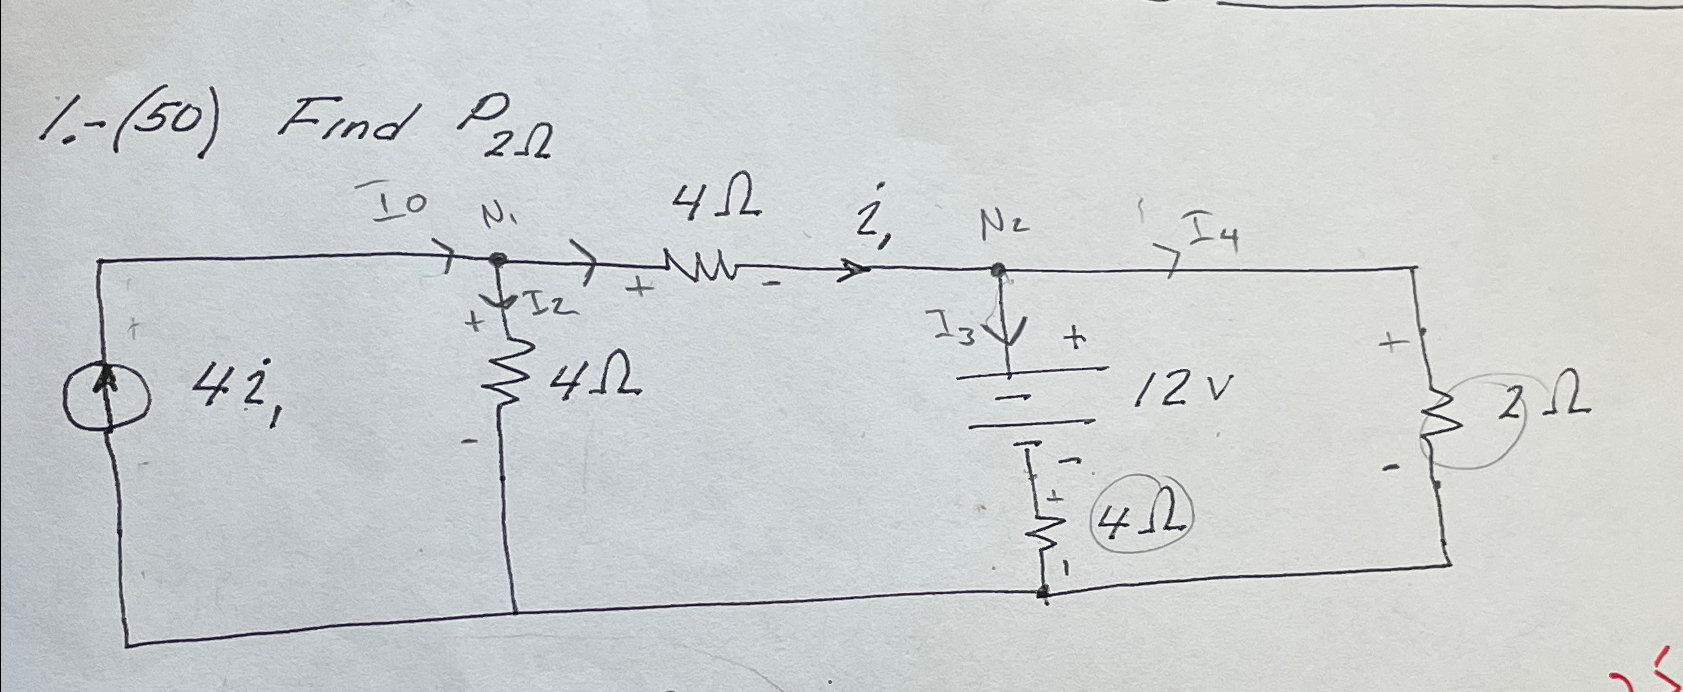 1.-(50) Find P2Ω
I0 N1 4Ω i1 N2 I4
+ -
+ I2 I3 + +
4i1 4Ω 12v 2Ω
- - -
+ 4Ω
-